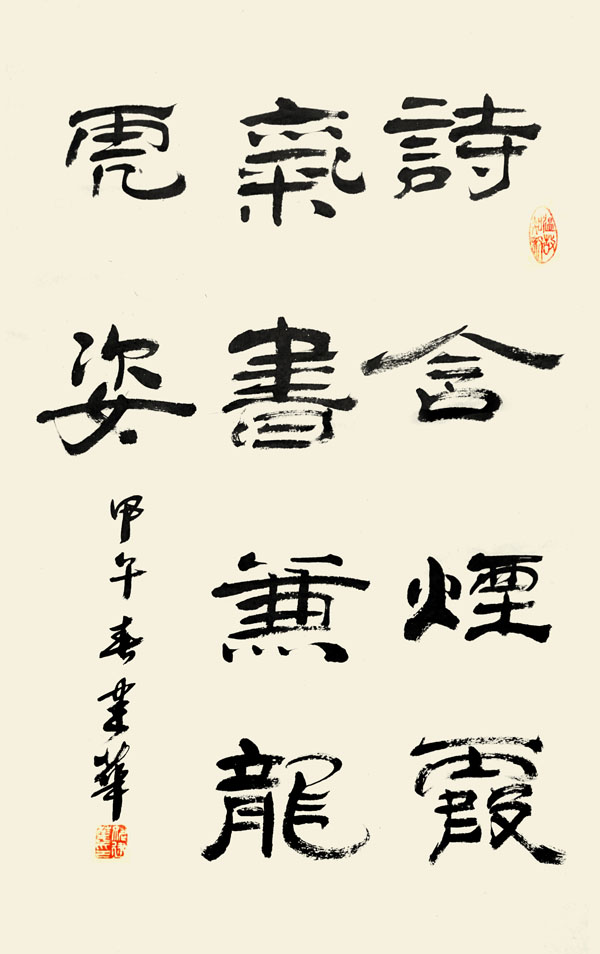 詩含煙霞
氣書兼龍
虎姿
甲午春業華